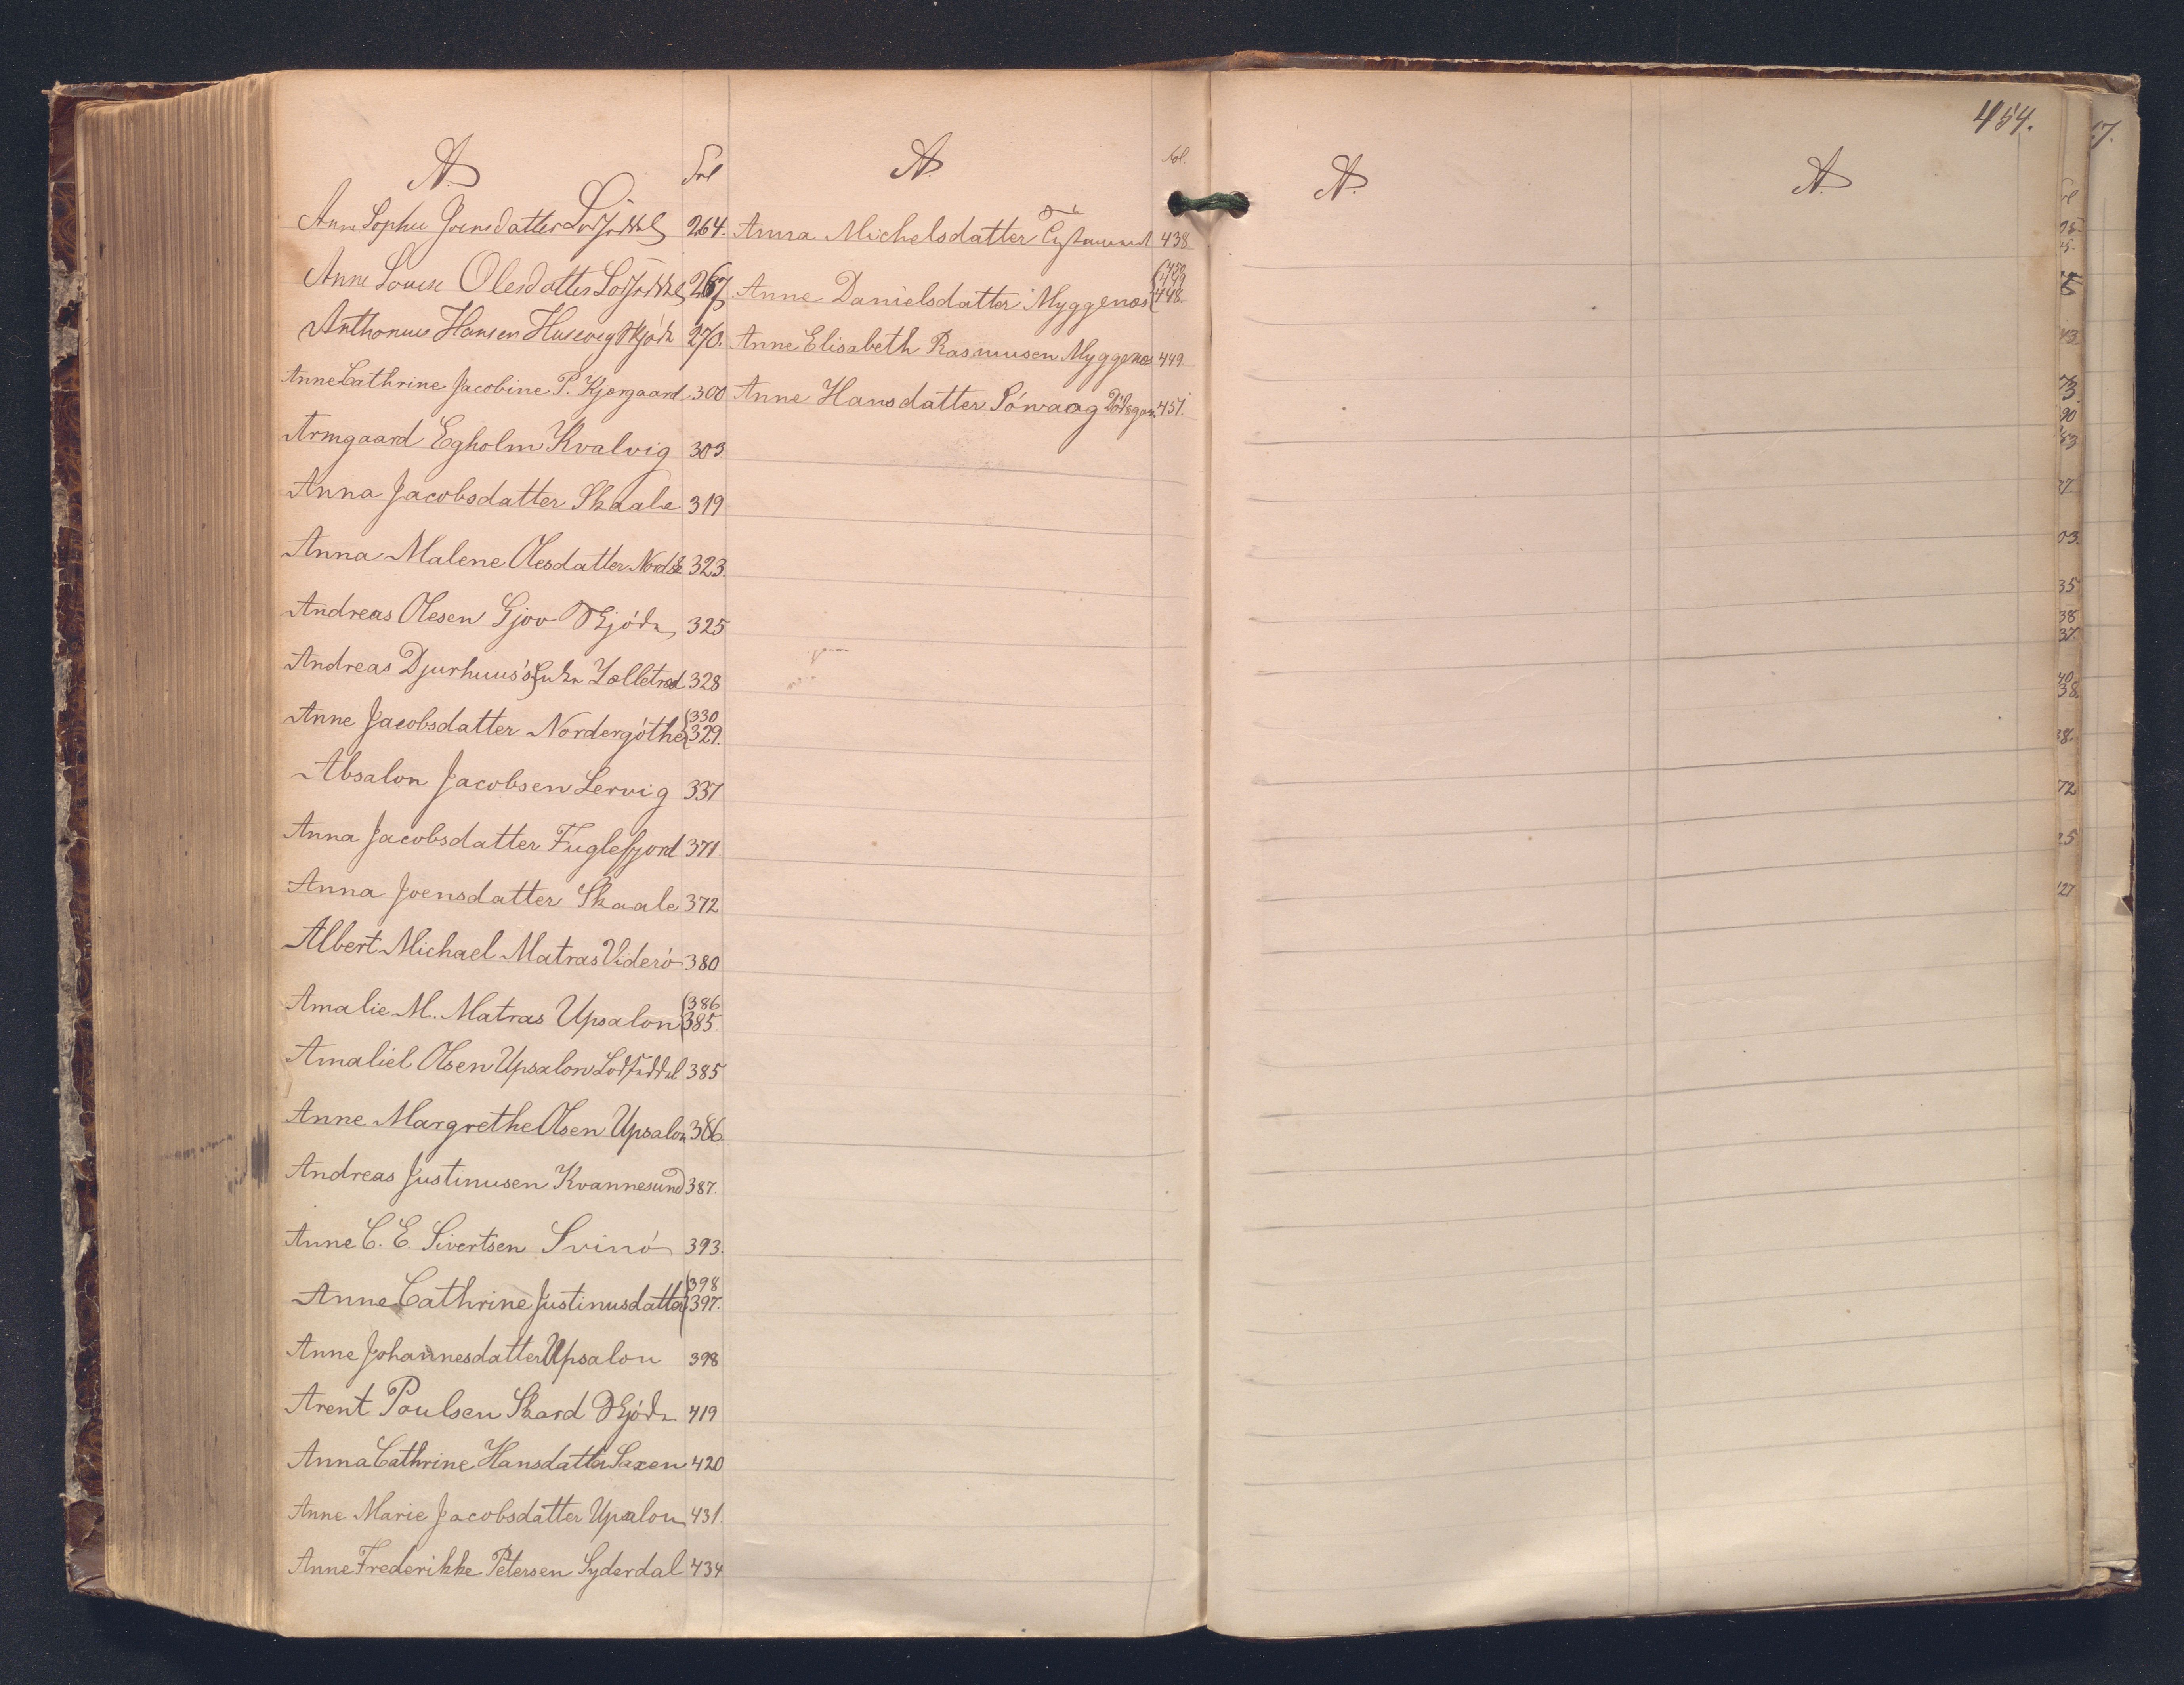 A.
Fol
Anne Sophie Joensdatter Lodseddel 264.
Anne Louise Olesdatter Lodseddel 267
Anthonius Hansen Husevig Skjøde 270.
Anne Cathrine Jacobine P. Kjørgaard 300
Armgaard Egholm Kvalvig 303
Anna Jacobsdatter Skaale 319
Anna Malene Olesdatter Nordsk 323.
Andreas Olesen Gjov Skjøde 325
Andreas Djurhuus's Enke Zolletræd 328
Anne Jacobsdatter Nordergøthe (330
329.
Absalon Jacobsen Lervig 337
Anna Jacobsdatter Fuglefjord 371
Anna Joensdatter Skaale 372
Albert Michael Matras Viderø 380
Amalie M. Matras Upsalon (386
385.
Amaliel Olsen Upsalon Lodseddel 385
Anne Margrethe Olsen Upsalon 386
Andreas Justinusen Kvannesund 387.
Anne C. E. Sivertsen Svinø 393.
Anne Cathrine Justinusdatter (398
397.
Anne Johannesdatter Upsalon 398
Arent Poulsen Skard Skjøde 419
Anna Cathrine Hansdatter Saxen 420
Anne Marie Jacobsdatter Upsalon 431.
Anne Frederikke Petersen Syderdal 434
A.
fol.
Anna Michelsdatter 438
(450
449
Anne Danielsdatter Myggenæs 448.
Anne Elisabeth Rasmusen Myggenæs 449
Anne Hansdatter Sørvaag 451.
A.
A.
454.